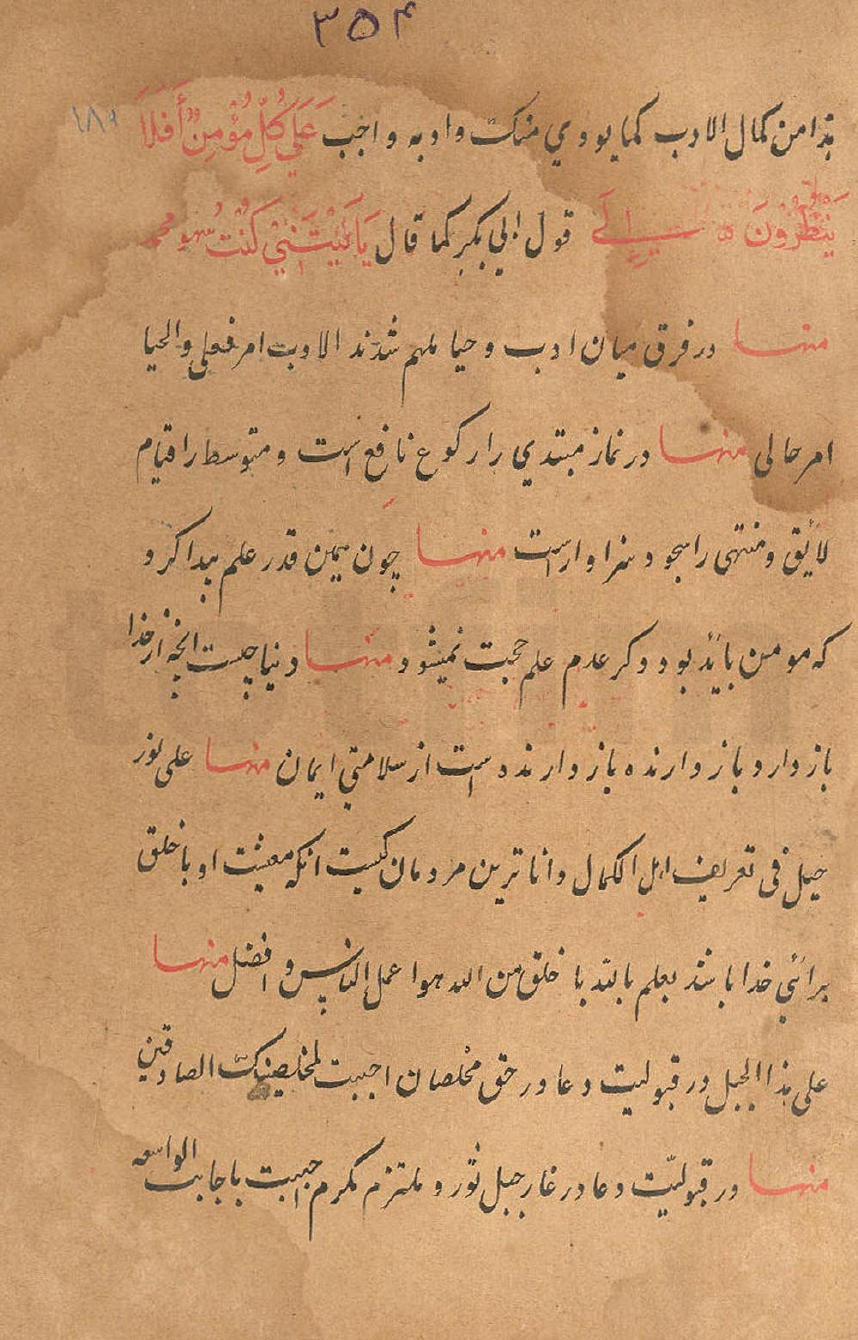 ۳۵۴
۱۸۹
هذا من کمال الادب کما یودی منک وادبه واجب عَلَی کُلِّ مُؤمِنٍ أَفَلَا
یَنظُرُونَ اِلَی قول ابی بکر کما قال یَا لَیْتَنِی کُنْتُ سهو محمد
منها در فرق میان ادب و حیا ملهم شدند الادب امر فعلی والحیا
امر حالی منها در نماز مبتدی را رکوع نافع است و متوسط را قیام
لایق و منتهی را سجود سزاوار است منها چون همین قدر علم پیدا کرد
که مومن باید بود دگر عدم علم حجت نمیشود منها دنیا چیست آنچه از خدا
باز دارد باز دارنده باز دارنده است از سلامتی ایمان منها علی نور
جبل فی تعریف اهل الکمال داناترین مردمان کیست آنکه معیشت او با خلق
برائی خدا باشد بعلم بالله با خلق من الله هو اعمل الناس و افضل منها
علی هذا الجبل در قبولیت دعا در حق مخلصان اجیبت لمخلصینک الصادقین
منها در قبولیّت دعا در غار جبل ثور و ملتزم مکرم اجیبت باجابت الواسعه